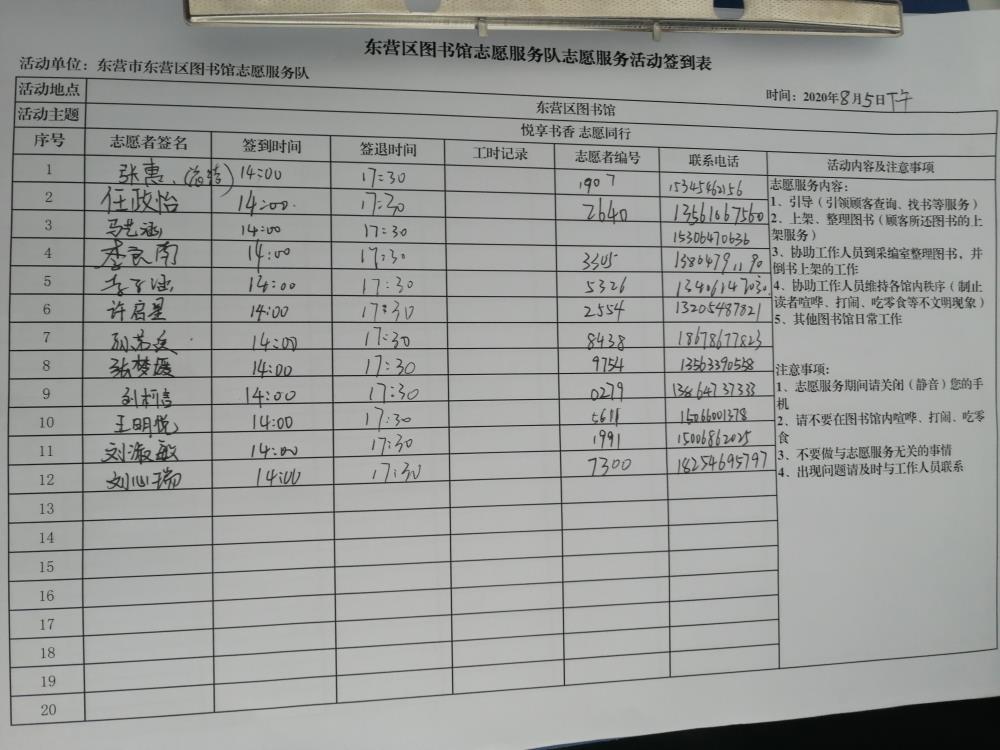 东营区图书馆志愿服务队志愿服务活动签到表
活动单位：东营市东营区图书馆志愿服务队
时间：2020年8月5日下午
活动地点 东营区图书馆
活动主题 悦享书香 志愿同行
序号 志愿者签名 签到时间 签退时间 工时记录 志愿者编号 联系电话 活动内容及注意事项
1 张惠 14:00 17:30 1907 15345462156
2 任政怡 14:00 17:30 2640 13561067560
3 马艺涵 14:00 17:30 15306470636
4 李良南 14:00 17:30 3305
5 14:00 17:30 5326
6 许启星 14:00 17:30 2554 13205487821
7 14:00 17:30 8438 18678677823
8 张梦媛 14:00 17:30 9754 13563390558
9 14:00 17:30 0279 13864737333
10 王明悦 14:00 17:30 5611 15066001378
11 刘淑敏 14:00 17:30 1991 15006862025
12 刘心瑞 14:00 17:30 7300 18254695797
13
14
15
16
17
18
19
20
志愿服务内容：
1、引导（引领顾客查询、找书等服务）
2、上架、整理图书（顾客所还图书的上
架服务）
3、协助工作人员到采编室整理图书，并
倒书上架的工作
4、协助工作人员维持各馆内秩序（制止
读者喧哗、打闹、吃零食等不文明现象）
5、其他图书馆日常工作
注意事项：
1、志愿服务期间请关闭（静音）您的手
机
2、请不要在图书馆内喧哗、打闹、吃零
食
3、不要做与志愿服务无关的事情
4、出现问题请及时与工作人员联系